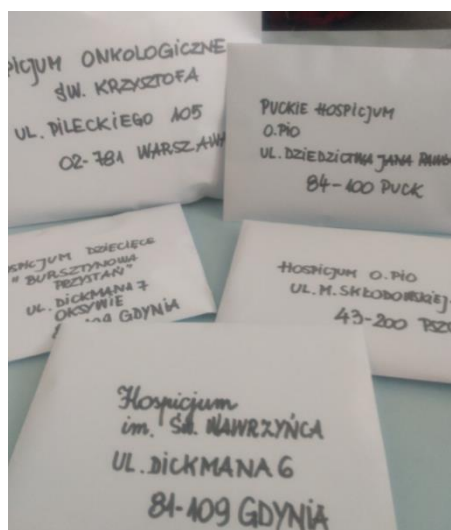 HOSPICJUM ONKOLOGICZNE
ŚW. KRZYSZTOFA
UL. PILECKIEGO 105
02-781 WARSZAWA
PUCKIE HOSPICJUM
O.PIO
UL. DZIEDZICTWA JANA
84-100 PUCK
HOSPICJUM DZIECIĘCE
"BURSZTYNOWA
PRZYSTAŃ"
UL. DICKMANA 7
OKSYWIE
GDYNIA
HOSPICJUM O.PIO
UL. M. SKŁODOWSKIEJ-
43-200
Hospicjum
im. ŚW. WAWRZYŃCA
UL. DICKMANA 6
81-109 GDYNIA